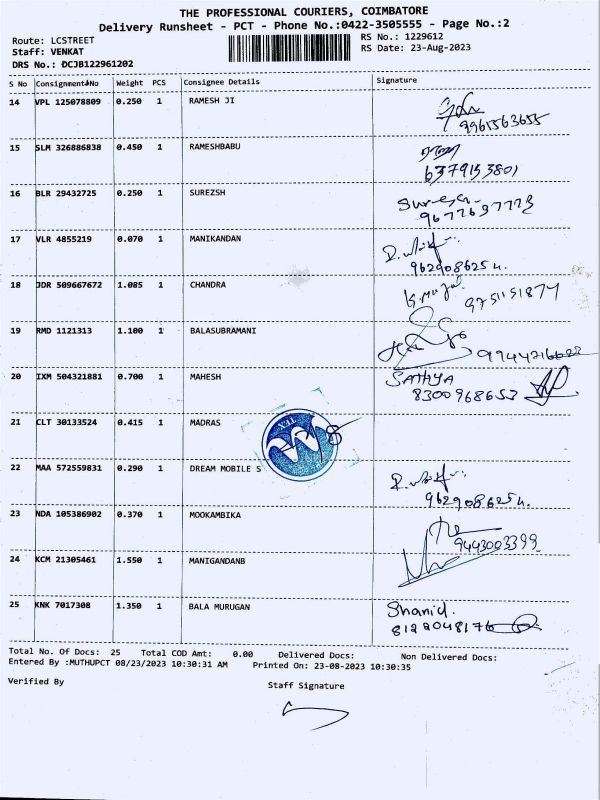 THE PROFESSIONAL COURIERS, COIMBATORE
Delivery Runsheet - PCT - Phone No.:0422-3505555 - Page No.:2
Route: LCSTREET RS No.: 1229612
Staff: VENKAT RS Date: 23-Aug-2023
DRS No.: DCJB122961202
S No Consignment#No Weight PCS Consignee Details Signature
14 VPL 125078809 0.250 1 RAMESH JI
9961563655
15 SLM 326886838 0.450 1 RAMESHBABU
6379153801
16 BLR 29432725 0.250 1 SUREZSH
9677697773
17 VLR 4855219 0.070 1 MANIKANDAN
9629086254.
18 JDR 509667672 1.085 1 CHANDRA
9751151874
19 RMD 1121313 1.100 1 BALASUBRAMANI
20 IXM 504321881 0.700 1 MAHESH SATHYA
8300968653
21 CLT 30133524 0.415 1 MADRAS
22 MAA 572559831 0.290 1 DREAM MOBILE S
9629086254.
23 NDA 105386902 0.370 1 MOOKAMBIKA
9443003399
24 KCM 21305461 1.550 1 MANIGANDANB
25 KNK 7017308 1.350 1 BALA MURUGAN Shanid.
8122048176
Total No. Of Docs: 25 Total COD Amt: 0.00 Delivered Docs: Non Delivered Docs:
Entered By :MUTHUPCT 08/23/2023 10:30:31 AM Printed On: 23-08-2023 10:30:35
Verified By Staff Signature